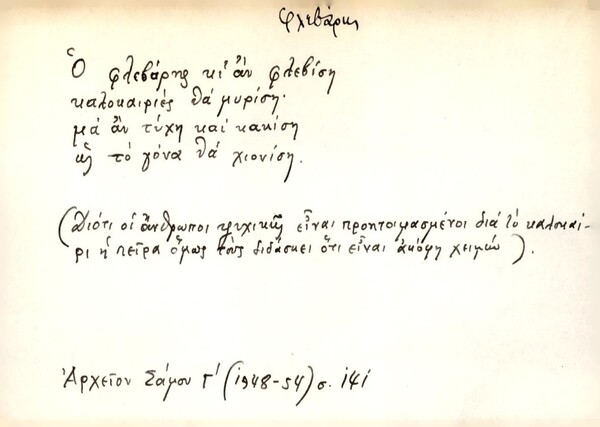 Φλεβάρης
Ὁ φλεβάρης κι' ἂν φλεβίση
καλοκαιριές θά μυρίση·
μά ἂν τύχη καί κακίση
ὣς τό γόνα θά χιονίση.
(Διότι οἱ ἄνθρωποι ψυχικῶς εἶναι προητοιμασμένοι διά τό καλοκαί-
ρι ἡ πεῖρα ὅμως τούς διδάσκει ὅτι εἶναι ἀκόμη χειμών).
Ἀρχεῖον Σάμου Γ' (1948-54) σ. 141